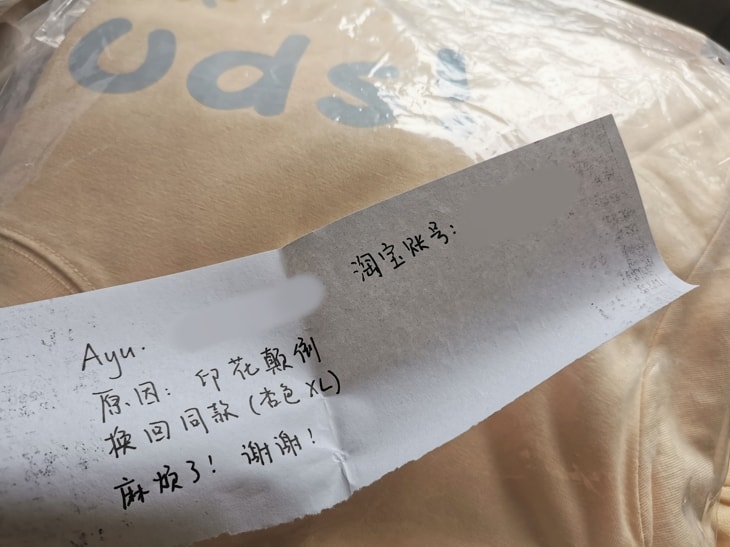 淘宝账号：
Ayu.
原因：印花颠倒
换回同款（杏色XL）
麻烦了！谢谢！